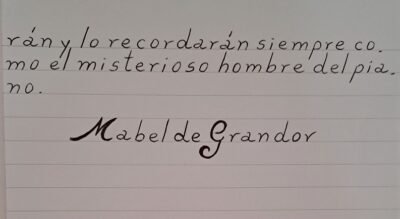 rán y lo recordarán siempre co.
mo el misterioso hombre del pia.
no.
Mabel de Grandor